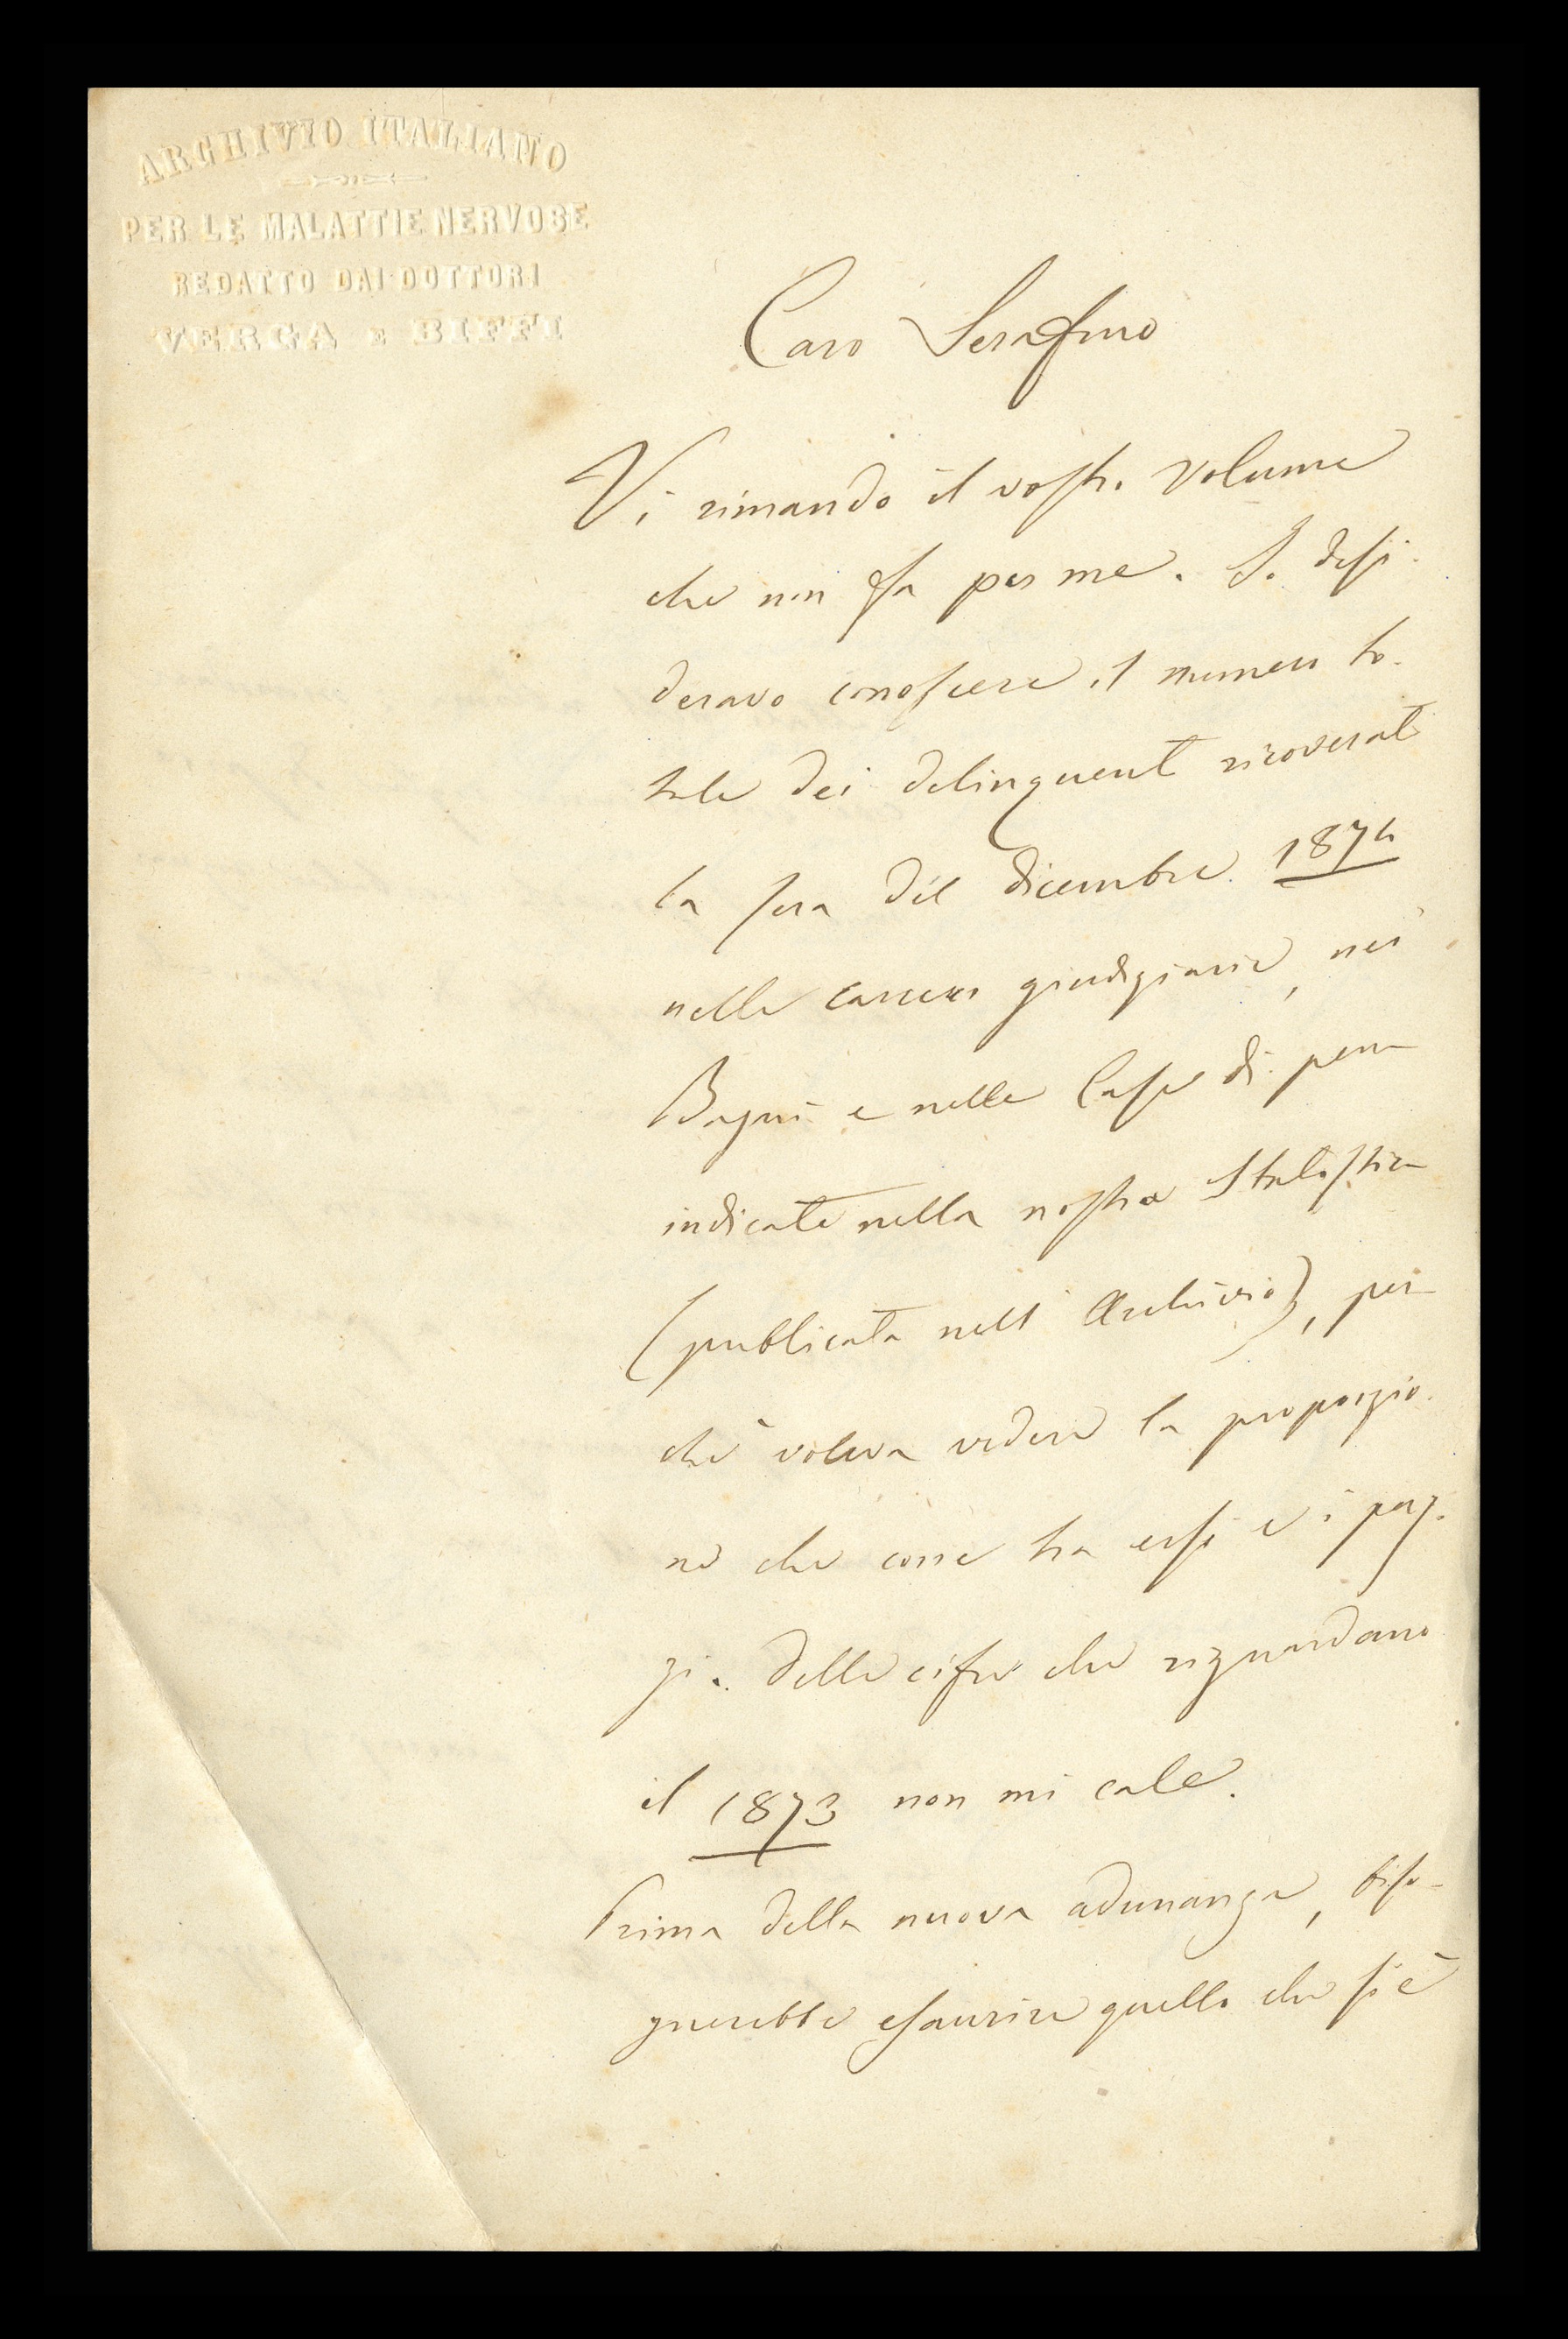 ARCHIVIO ITALIANO
PER LE MALATTIE NERVOSE
REDATTO DAI DOTTORI
VERGA E BIFFI
Caro Serafino
Vi rimando il vostro volume
che non fa per me. Io desi-
deravo conoscere il numero to-
tale dei delinquenti ricoverati
la sera del dicembre 1874
nelle carceri giudiziarie, nei
Bagni e nelle Case di pena
indicate nella nostra Statistica
(pubblicata nell'Archivio), per-
chè voleva vedere la proporzio-
ne che corre tra essi e i paz-
zi. Delle cifre che riguardano
il 1873 non mi cale.
Prima della nuova adunanza, biso-
gnerebbe esaurire quello che si è